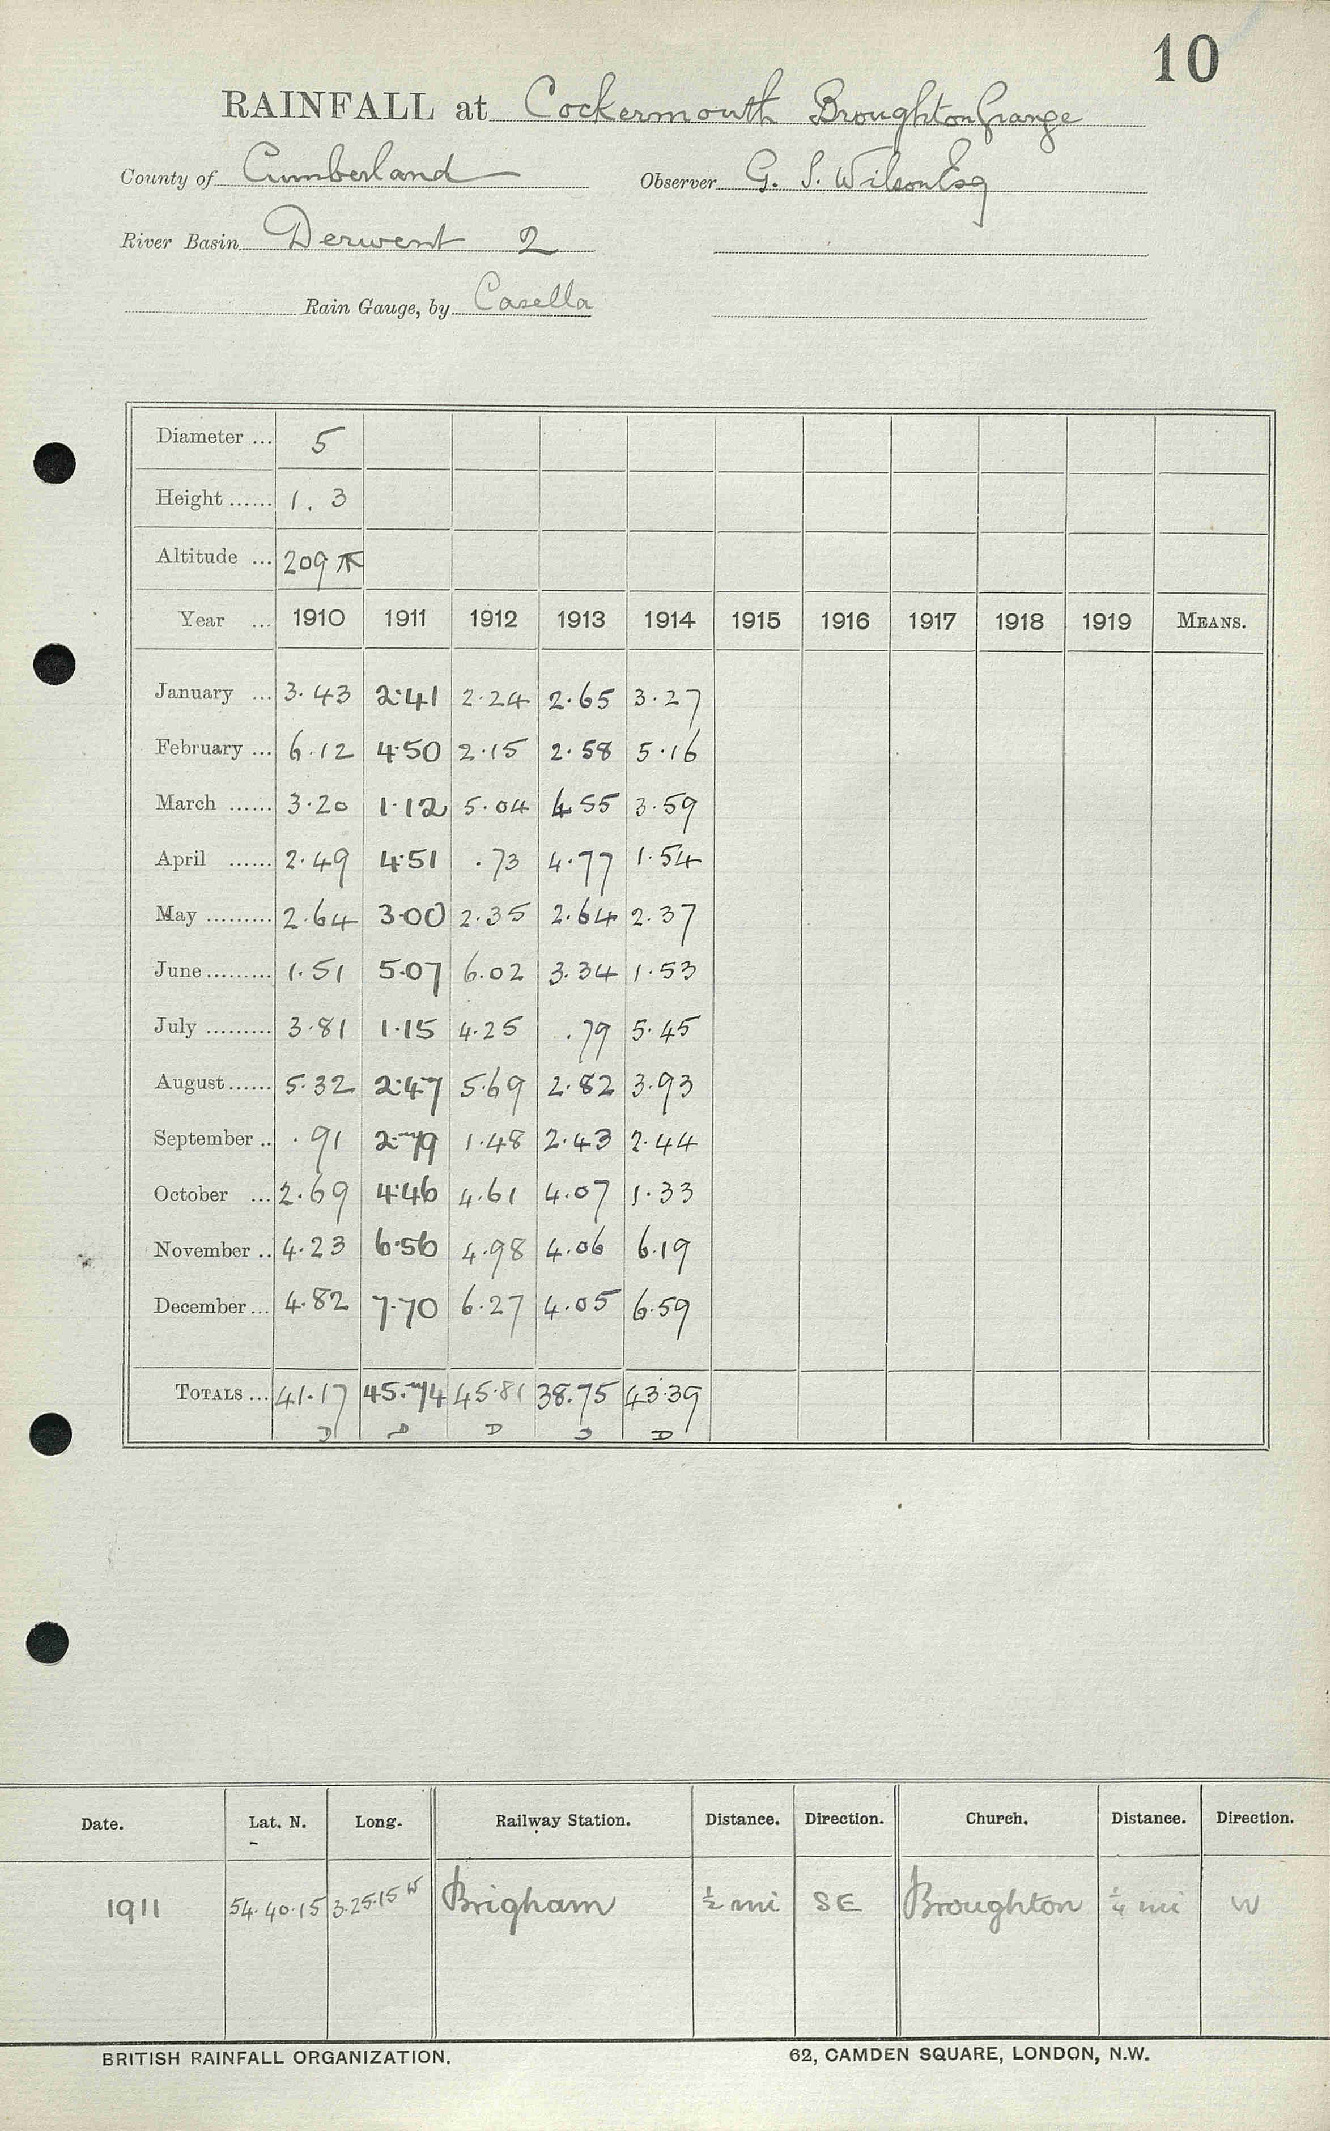 10
RAINFALL at Cockermouth Broughton Grange
County of Cumberland Observer G. S. Wilson Esq
River Basin Derwent 2
Rain Gauge, by Casella
Diameter ... 5
Height ...... 1. 3
Altitude ... 209
Year ... 1910 1911 1912 1913 1914 1915 1916 1917 1918 1919 MEANS.
January ... 3.43 2.41 2.24 2.65 3.27
February ... 6.12 4.50 2.15 2.58 5.16
March ...... 3.20 1.12 5.04 4.55 3.59
April ...... 2.49 4.51 .73 4.77 1.54
May ......... 2.64 3.00 2.35 2.64 2.37
June ......... 1.51 5.07 6.02 3.34 1.53
July ......... 3.81 1.15 4.25 .79 5.45
August ...... 5.32 2.47 5.69 2.82 3.93
September .. .91 2.79 1.48 2.43 2.44
October ... 2.69 4.46 4.61 4.07 1.33
November .. 4.23 6.56 4.98 4.06 6.19
December ... 4.82 7.70 6.27 4.05 6.59
TOTALS ... 41.17 45.74 45.81 38.75 43.39
D D D D D
Date. Lat. N. Long. Railway Station. Distance. Direction. Church. Distance. Direction.
1911 54.40.15 3.25.15 W Brigham ½ mi SE Broughton ¼ mi W
BRITISH RAINFALL ORGANIZATION. 62, CAMDEN SQUARE, LONDON, N.W.